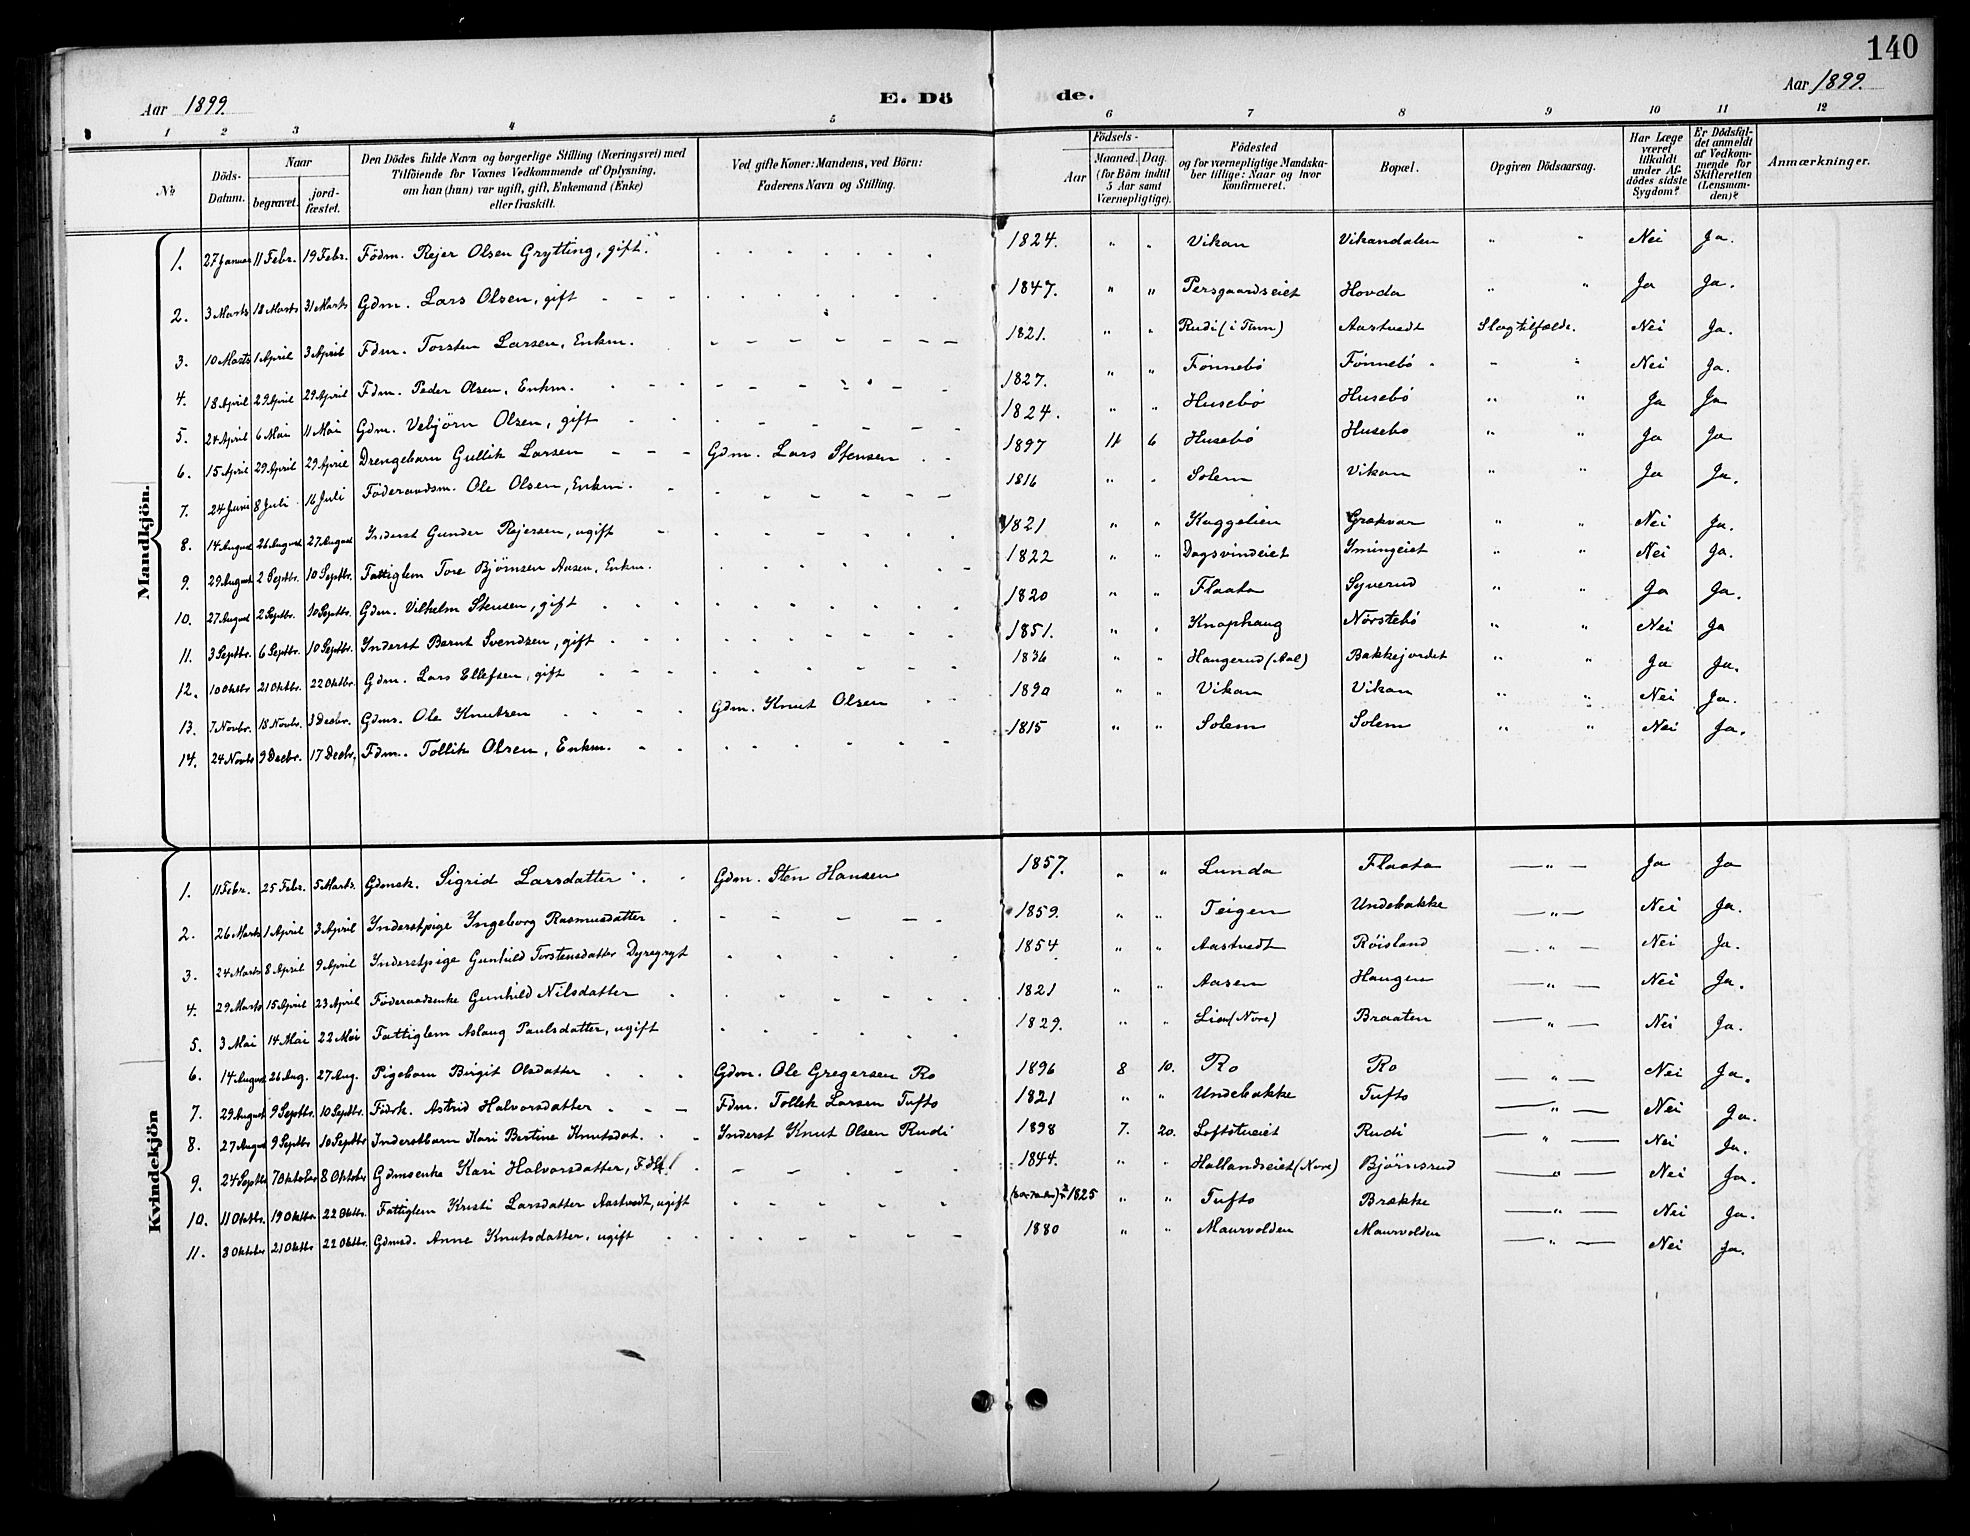 140
Aar 1899.
E. Döde.
Aar 1899.
1 2 3 4 5 6 7 8 9 10 11 12
No
Döds-Datum.
Naar begravet.
jord-fæstet.
Den Dödes fulde Navn og borgerlige Stilling (Næringsvei) med Tilföiende for Voxnes Vedkommende af Oplysning, om han (hun) var ugift, gift, Enkemand (Enke) eller fraskilt.
Ved gifte Koner: Mandens, ved Börn: Faderens Navn og Stilling.
Födsels-
Aar
Maaned. Dag. (for Börn indtil 5 Aar samt Værnepligtige).
Födested og for værnepligtige Mandskaber tillige: Naar og hvor konfirmeret.
Bopæl.
Opgiven Dödsaarsag.
Har Læge været tilkaldt under Afdödes sidste Sygdom?
Er Dödsfaldet anmeldt af Vedkommende for Skifteretten (Lensmanden)?
Anmærkninger.
Mandkjön.
1. 27 Januar 11 Febr. 19 Febr. Födm. Rejer Olsen Grytting, gift. 1824. " " Vikan Vikandalen " " Nei Ja.
2. 3 Marts 18 Marts 31 Marts Gdm. Lars Olsen, gift 1847. " " Persgaardseiet Hovda " " Ja Ja.
3. 10 Marts 1 April 3 April Fdm. Torsten Larsen, Enkm. 1821. " " Rudi (i Tunn) Aastvedt Slagtilfælde. Nei Ja.
4. 18 April 29 April 29 April Fdm. Peder Olsen, Enkm. 1827. " " Fønnebø Fønnebø " " Nei Ja.
5. 24 April 6 Mai 11 Mai Gdm. Vebjörn Olsen, gift 1824. " " Husebö Husebö " " Ja Ja
6. 15 April 29 April 29 April Drengebarn Gullik Larsen Gdm. Lars Stensen 1897 11 6 Husebö Husebö " " Ja Ja
7. 24 Juni 8 Juli 16 Juli Föderaadsm. Ole Olsen, Enkm. 1816 " " Solem Vikan " " Ja Ja.
8. 14 August 26 August 27 August Inderst Gunder Rejersen, ugift 1821 " " Kaggelien Grækvar " " Nei Ja.
9. 29 August 2 Septbr. 10 Septbr. Fattiglem Tore Bjørnsen Aasen, Enkm. 1822 " " Dagsvindeiet Ymingeiet " " Nei Ja.
10. 27 August 2 Septbr. 10 Septbr. Gdm. Vilhelm Stensen, gift 1820 " " Flaata Syverud " " Ja Ja.
11. 3 Septbr. 6 Septbr. 10 Septbr. Inderst Bernt Svendsen, gift 1851. " " Knaphaug Nörstebö " " Nei Ja
12. 10 Oktbr 21 Oktbr. 22 Oktbr. Gdm. Lars Ellefsen, gift 1836 " " Haugerud (Aal) Bakkejordet " " Ja Ja.
13. 7 Novbr. 18 Novbr. 3 Decbr. Gdms. Ole Knutsen Gdm. Knut Olsen 1890 " " Vikan Vikan " " Nei Ja.
14. 24 Novbr 9 Decbr. 17 Decbr. Fdm. Tollik Olsen, Enkm. 1815 " " Solem Solem " " Nei Ja.
Kvindekjön
1. 11 Febr. 25 Febr. 5 Marts. Gdmsk. Sigrid Larsdatter Gdm. Sten Hansen 1857. " " Lunda Flaata — " — Ja Ja
2. 26 Marts 1 April 3 April Inderstpige Ingeborg Rasmusdatter 1859. " " Teigen Undebakke — " — Nei Ja.
3. 24 Marts 8 April 9 April Inderstpige Gunhild Torstensdatter Dyregryt 1854 " " Aastvedt Röisland — " — Nei Ja.
4. 29 Marts 15 April 23 April Föderaadsenke Gunhild Nilsdatter 1821 " " Aasen Haugen — " — Nei Ja.
5. 3 Mai 14 Mai 22 Mai Fattiglem Aslaug Paulsdatter, ugift 1829. " " Lien (Nore) Braaten — " — Nei Ja.
6. 14 August 26 Aug. 27 Aug. Pigebarn Birgit Olsdatter Gdm. Ole Gregersen Ro 1896 8 10. Ro Ro — " — Nei Ja.
7. 29 August 9 Septbr. 10 Septbr. Födrk. Astrid Halvorsdatter Fdm. Tollek Larsen Tufto 1821 " " Undebakke Tufto — " — Nei Ja.
8. 27 August 9 Septbr 10 Septbr Inderstbarn Kari Bertine Knutsdat. Inderst Knut Olsen Rudi 1898 7. 20. Loftstueiet Rudi — " — Nei Ja.
9. 24 Septbr 7 Oktober 8 Oktober Gdmsenke Kari Halvorsdatter, 1844. " " Hallandseiet (Nore) Björnsrud — " — Nei Ja.
10. 11 Oktbr. 19 Oktbr 22 Oktbr. Fattiglem Kristi Larsdatter Aastvedt, ugift 1825 " " Tufto Brække — " — Nei Ja.
11. 3 Oktober 21 Oktbr 22 Oktbr. Gdmsd. Anne Knutsdatter, ugift 1880 " " Maurvolden Maurvolden — " — Nei Ja.